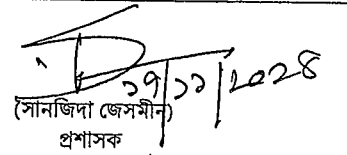 ১৭/১১/২০২৪
(সানজিদা জেসমীন)
প্রশাসক